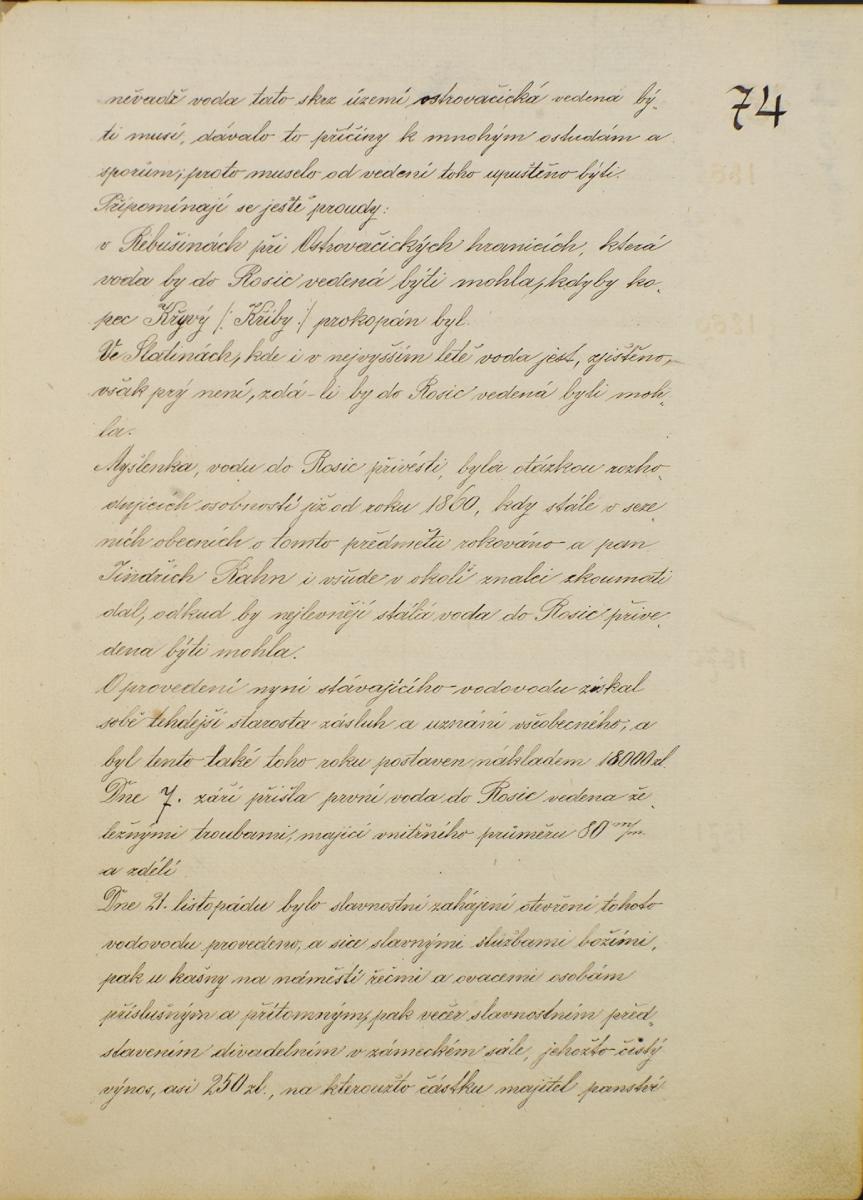 74
nevadě voda tato skrz území ostrovačická vedena bý-
ti musí, dávalo to příčiny k mnohým ostudám a
sporům; proto muselo od vedení toho upuštěno býti.
Připomínají se ještě proudy:
v Řibušinách při Ostrovačických hranicích, která
voda by do Rosic vedená býti mohla, kdyby ko-
pec Křyvý /: Křiby :/ prokopán byl.
Ve Slatinách, kde i v nejvyšším letě voda jest, zjištěno,
však prý není, zdá-li by do Rosic vedená byli moh-
la.
Myšlenka, vodu do Rosic přivésti, byla otázkou rozho-
dujících osobností již od roku 1860, kdy stále v seze-
ních obecních o tomto předmětu rokováno a pan
Jindřich Kahn i všude v okolí znalci zkoumati
dal, odkud by nejlevněji stálá voda do Rosic přive-
dena býti mohla.
O provedení nyní stávajícího vodovodu získal
sobě tehdejší starosta zásluh a uznání všeobecného, a
byl tento také toho roku postaven nákladem 18000 zl.
Dne 7. září přišla první voda do Rosic vedena že-
leznými troubami, mající vnitřního průměru 80 m/m
a zdélí
Dne 21. listopádu bylo slavnostní zahájení otevření tohoto
vodovodu provedeno, a sice slavnými službami božími,
pak u kašny na náměstí řečmi a ovacemi osobám
příslušným a přítomným, pak večer slavnostním před-
stavením divadelním v zámeckém sále, jehožto čistý
výnos, asi 250 zl., na kteroužto částku majitel panství